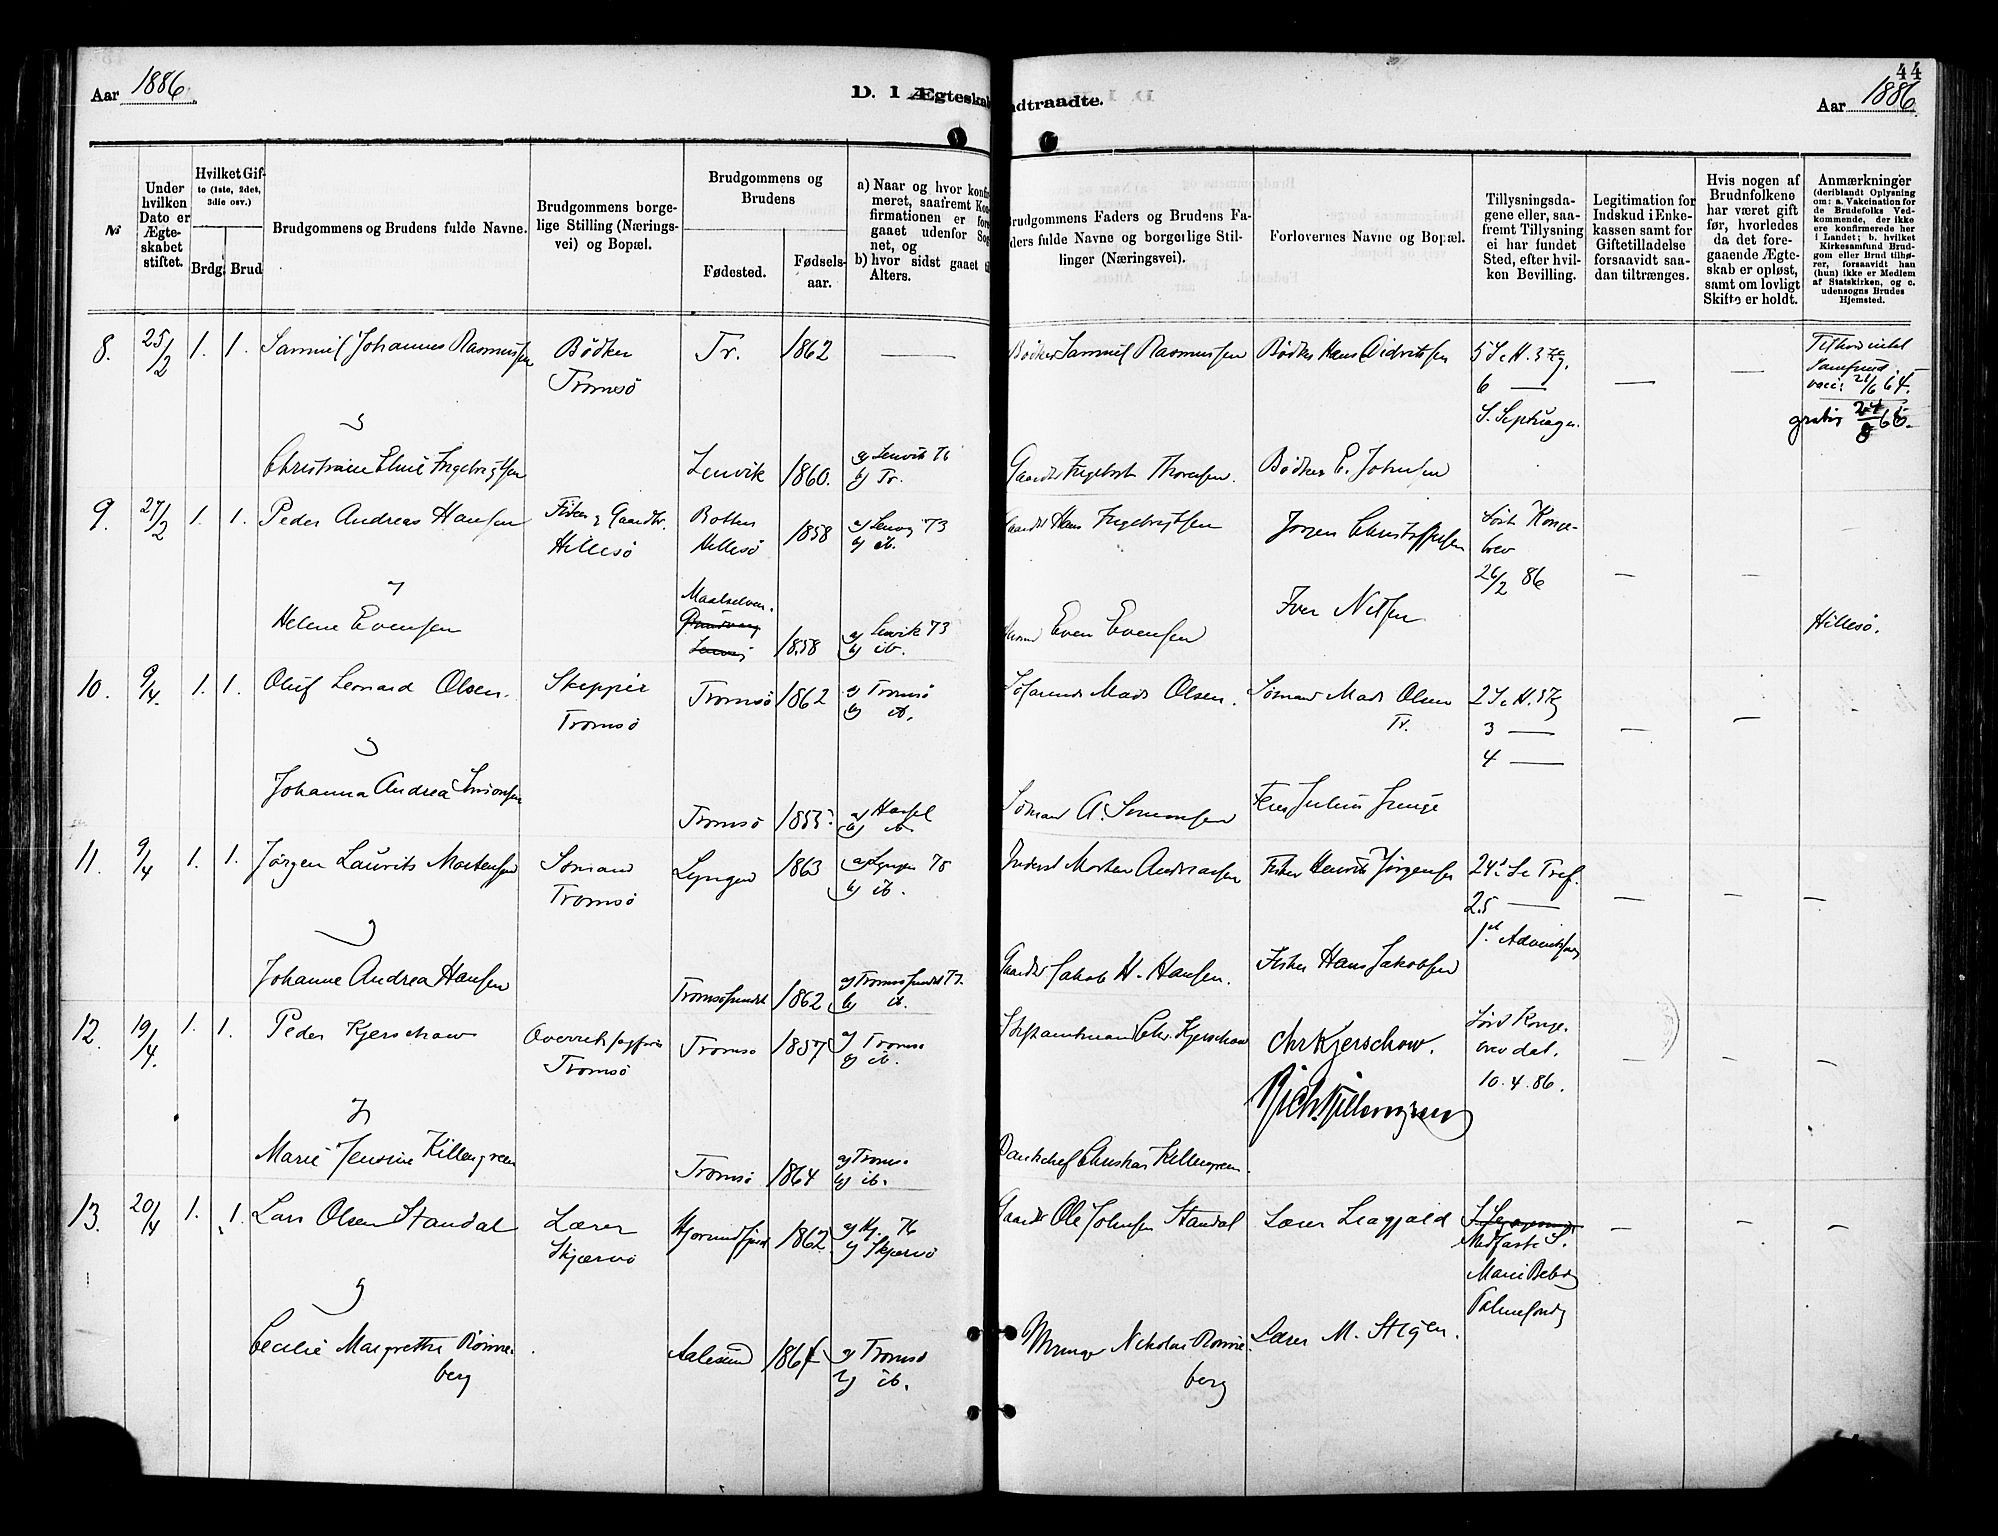 44
Aar 1886
D. I Ægteskab
ndtraadte.
Aar 1886
№
Under hvilken Dato er Ægteskabet stiftet.
Hvilket Gifte (1ste, 2det, 3die osv.)
Brdg. Brud
Brudgommens og Brudens fulde Navne.
Brudgommens borgelige Stilling (Næringsvei) og Bopæl.
Brudgommens og Brudens
Fødested.
Fødselsaar.
a) Naar og hvor konfirmeret, saafremt Konfirmationen er
gaaet udenfor
net, og
b) hvor sidst gaaet til Alters.
Brudgommens Faders og Brudens Faders fulde Navne og borgerlige Stillinger (Næringsvei).
Forlovernes Navne og Bopæl.
Tillysningsdagene eller, saafremt Tillysning ei har fundet Sted, efter hvilken Bevilling.
Legitimation for Indskud i Enkekassen samt for Giftetilladelse forsaavidt saadan tiltrænges.
Hvis nogen af Brudnfolkene har været gift før, hvorledes da det foregaaende Ægteskab er opløst, samt om lovligt Skifte er holdt.
Anmærkninger
(deriblandt Oplysning om: a. Vakcination for de Brudefolks Vedkommende, der ikke ere konfirmerede her i Landet; b. hvilket Kirkesamfund Brudgom eller Brud tilhører, forsaavidt han (hun) ikke er Medlem af Statskirken, og c. udensogns Brudes Hjemsted.
8. 25/2 1. 1. Samuel Johannes Rasmussen Bødker Tr. 1862 — Bødker Samuel Rasmussen Bødker Hans Didriksen 5 S. e. H. 3 Kg.
Tromsø 6 —
S. Septuages. gratis
Christine Elise Ingebrigtsen Lenvik 1860. a) Lenvik 76 Gaardbr. Ingebrigt Thoresen. Bødker E. Johnsen
b) Tr.
9. 27/2 1. 1. Peder Andreas Hansen Fisker og Gaardbr. 1858 a) Lenvig 73 Gaardbr. Hans Ingebrigtsen Jørgen Christophersen Løst Konge-
Hillesø Hillesø b) ib. brev
26/2 86
og Maalselven.
Helene Evensen 1858 a) Lenvik 73 Even Evensen Iver Nilsen Hillesø.
b) ib.
10. 9/4. 1. 1. Oluf Leonard Olsen. Skipper Tromsø 1862 a) Tromsø Mads Olsen. Sømand Mads Olsen 2 S. e. H. 3 Kg
Tromsø b) ib. Tr. 3 —
4 —
Johanna Andrea Simonsen Tromsø 1855. a) Hassel Sømand A. Simonsen Julius
b) ib.
11. 9/4 1. 1. Jørgen Laurits Mortensen Sømand Lyngen 1863 a) Lyngen 78 Inderst Morten Andreassen Fisker Henrik Jørgensen 24. S. e. Tref.
Tromsø b) ib. 25 —
1st Advents
Johanne Andrea Hansen Tromsøsundet 1862 a) Tromsøsundet 77. Gaardbr. Jakob H. Hansen. Fisker Hans Jakobsen
b) ib.
12. 19/4. 1. 1. Peder Kjerschow Overretssagfører Tromsø 1857 a) Tromsø Stiftamtmand Chr. Kjerschow Chr Kjerschow. Løst Konge-
Tromsø b) ib. brev dat.
10. 4. 86.
og
Marie Jensine Killengreen Tromsø 1864 a) Tromsø Bankchef Christian Killengreen.
b) ib.
13. 20/4 1. 1. Lars Olsen Standal Lærer Hjørundfjord 1862 a) Hj. 76 Gaardbr. Ole Johnsen Standal Lærer
Skjærvø b) Skjærvø Midfaste S.
Mariæ Beb.
og Palmesønd.
Cecilie Margrethe Rønne- Aalesund 1864 a) Tromsø Nikolai Rønne- Lærer M. Stigen.
berg b) ib. berg